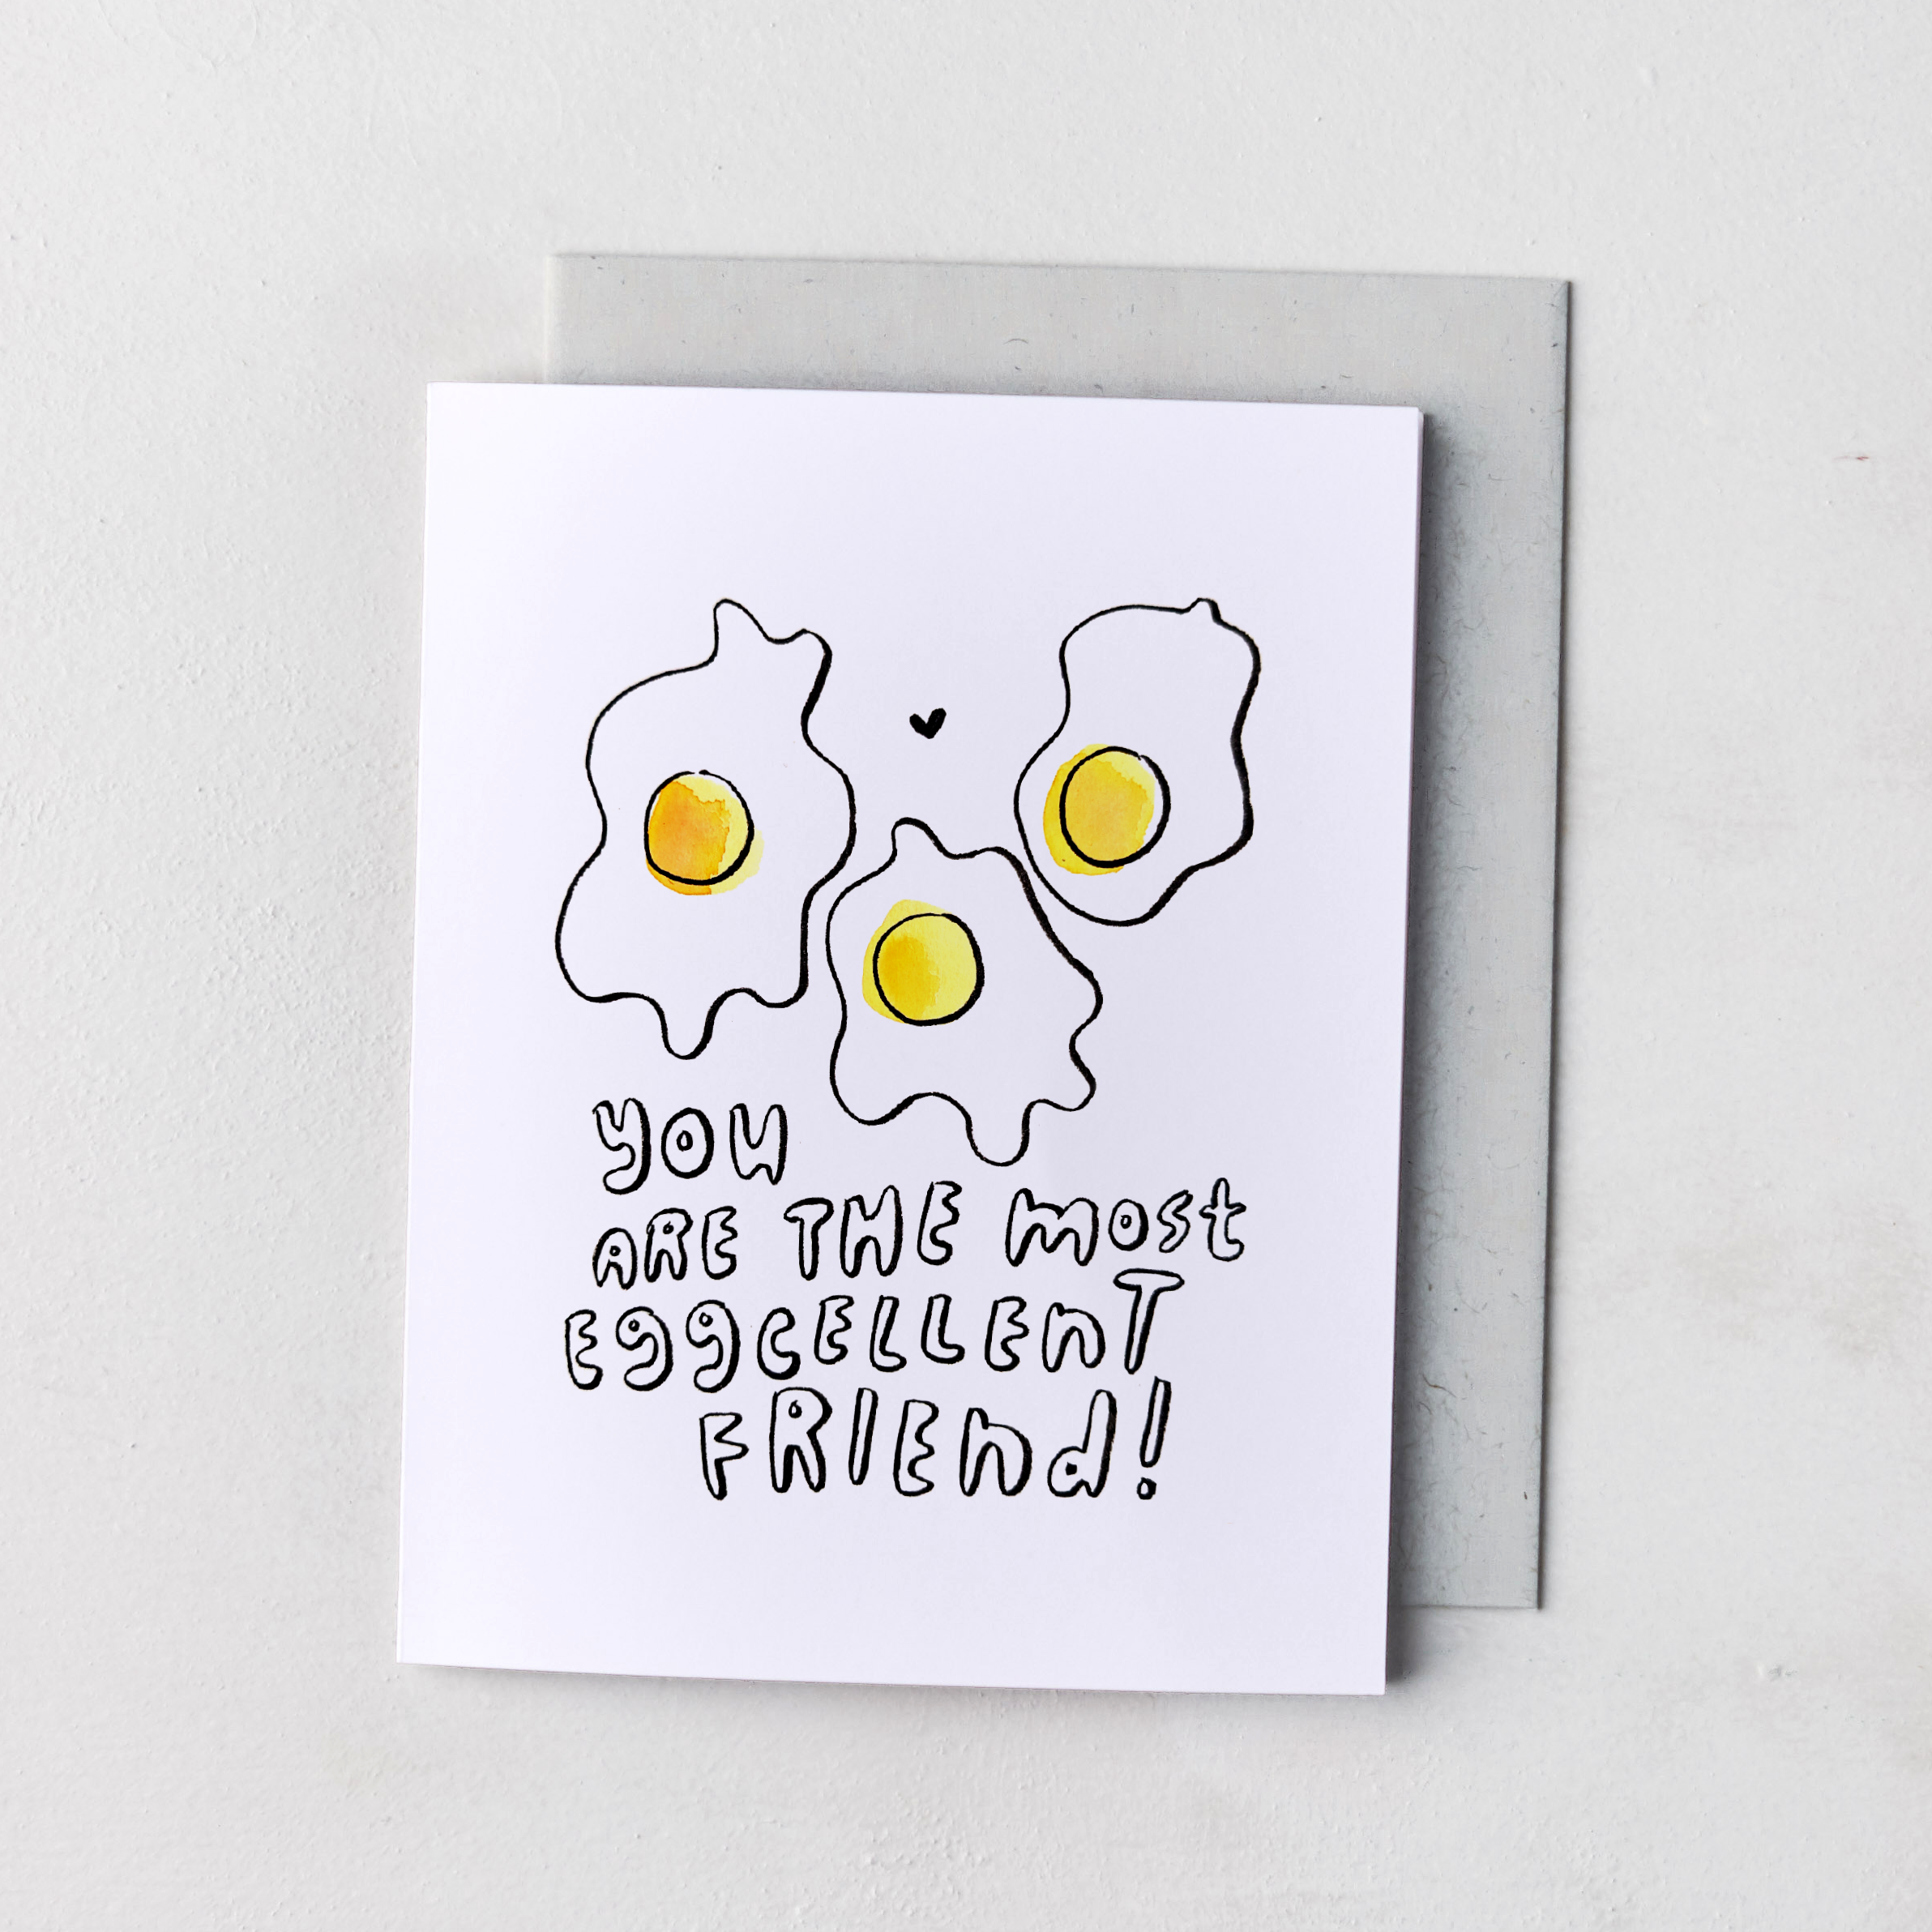 YOU
ARE THE mOST
EggCELLEnT
FRIEnd!